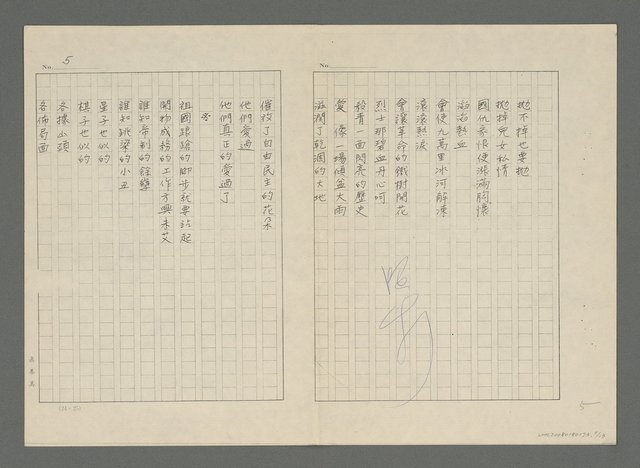 拋不掉也要拋
拋掉兒女私情
國仇家恨便漲滿胸懷
滔滔熱血
會使九萬里冰河解凍
滾滾熱淚
會讓革命的鐵樹開花
烈士那碧血丹心呵
發青一面閃亮的歷史
愛 像一場傾盆大雨
滋潤了乾涸的大地
No.
5
No. 5
催放了自由民主的花朵
他們愛過
他們真正的愛過了
祖國踉蹌的腳步就要站起
開物成務的工作方興未艾
誰知帝制的餘孽
誰知跳梁的小丑
星子也似的
棋子也似的
各據山頭
各佈局面